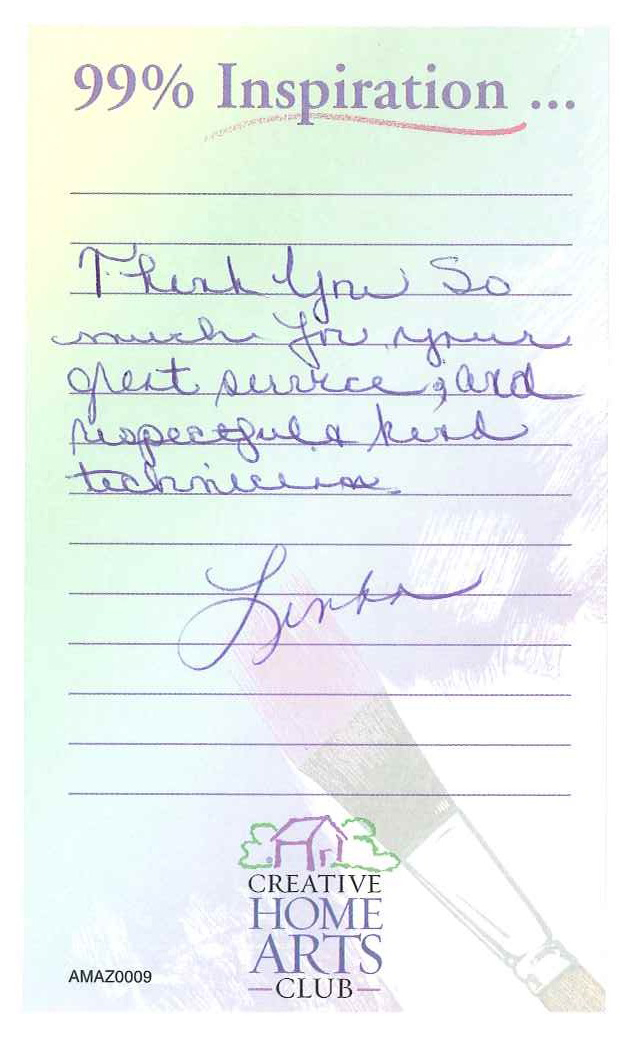 99% Inspiration ...
Thank You So
much for your
great service, and
respectful & kind
technician.
Linda
CREATIVE
HOME
ARTS
CLUB
AMAZ0009